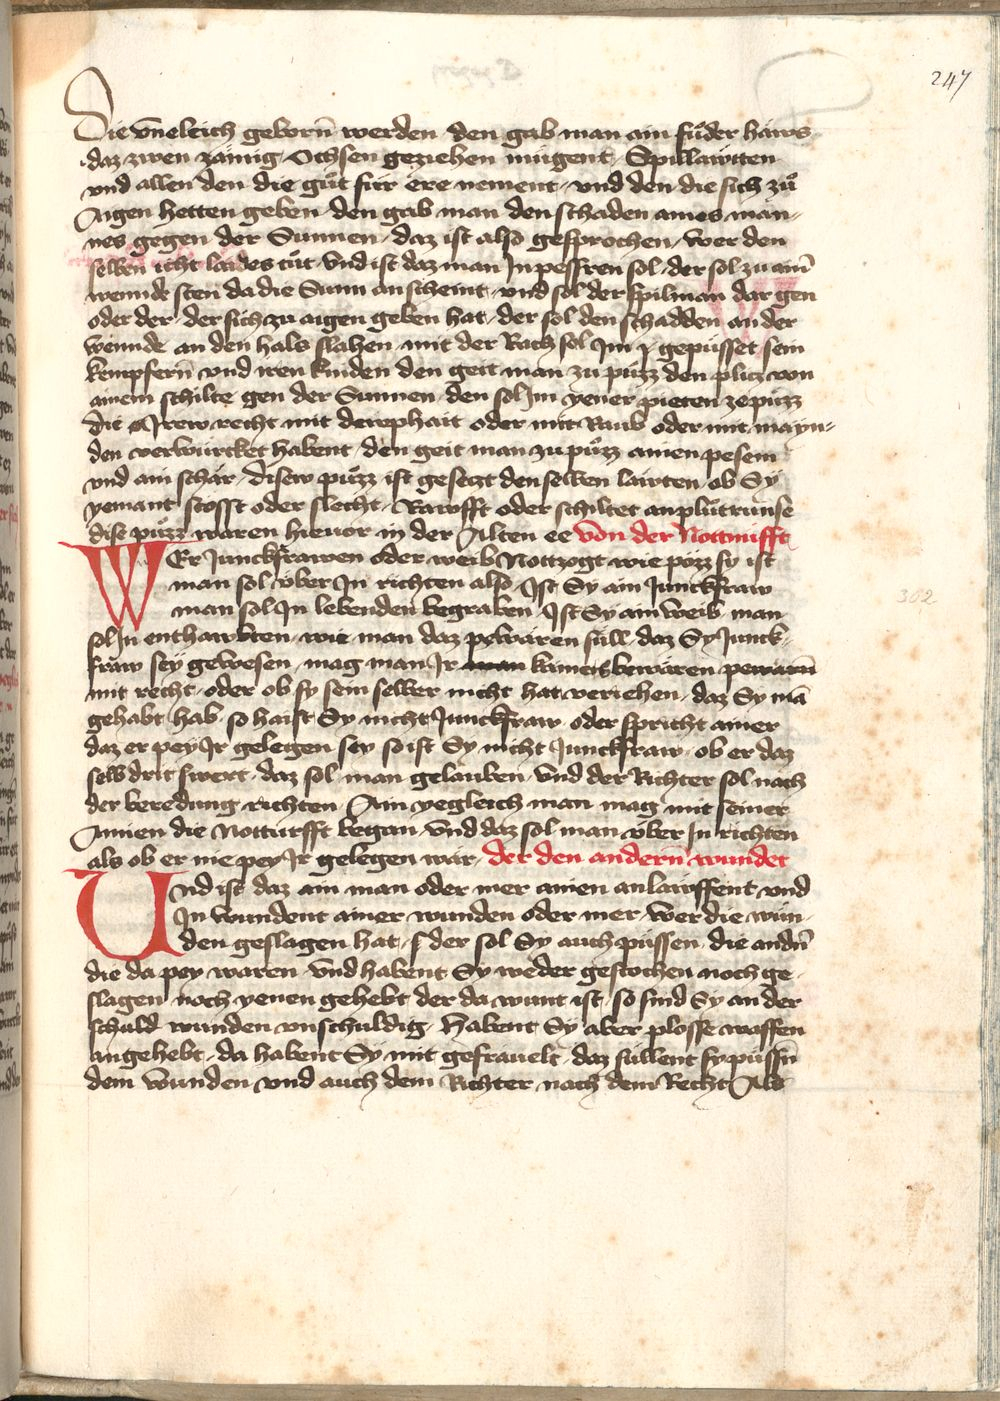 247
Die vneleich geborn̄ werden den gab man ain fůder häws
daz zwen zämig Ochsen geziehen mügent Spillawten
vnd allen den die gůt für ere nement vnd den die sich zů
Aigen hetten geben den gab man den schaden ains man-
nes gegen der Sunnen daz ist also gesprochen wer den
selben icht laides tůt vnd ist daz man Jn pessren sol der sol zu ainē
wennde sten da die Sunn an scheint vnd sol der spilman dar gen
oder der der sich zu aigen geben hat der sol den schadden an der
wennde an den hals slahen mit der Rach sol Jm gepüsset sein
kempfern̄ vnd iren kinden den geit man zu půzz den plicz von
ainem schilte gen der Sunnen den sol Jm yener pieten ze půzz
die Jrew recht mit dewphait oder mit Raub oder mit mayn-
den verwürcket habent den geit man zu půzz ainen pesem
vnd ain schär disew půzz ist geseczt den selben läwten ob Sy
yemant stosst oder slecht Rawfft oder schiltet an plůtrunse
dise půzz waren hieuor in der Alten ee von der Nottnüfft
WEr Junckfrawen oder weib Nottzogt wie pözz sy ist
man sol vber Jn richten also Jst Sy ain Junckfraw
man sol Jn lebenden begraben Jst Sy ain weib man
sol Jn enthawbten wie man daz pewären süll daz Sy Junck-
fraw sey gewesen mag man Jr kainers bewären
mit recht oder ob sy sein selber nicht hat veriehen daz Sy mā
gehabt hab so haist Sy nicht Junckfraw oder spricht ainer
daz er pey Jr gelegen sey so ist Sy nicht Junckfraw ob er daz
selb drit swert daz sol man gelauben vnd der Richter sol nach
der beredung richten Ain yegleich man mag mit seiner
Amien die Notturfft began vnd daz sol man vber Jn richten
als ob er nie pey Jr gelegen wär der den andern̄ wundet
Und ist daz ain man oder mer ainen anlawffent vnd
Jn wundent ainer wunden oder mer wer die wun-
den geslagen hat der sol Sy auch püssen die andn̄
die da pey waren vnd habent Sy weder gestochen noch ge-
slagen noch yenen gehebt der da wunt ist so sind Sy an der
schuld wunden vnschuldig Habent Sy aber plosse waffen
angehebt da habent Sy mit gefrauelt daz süllent sy püssn̄
dem wunden vnd auch dem Richter nach dem Recht Als
302